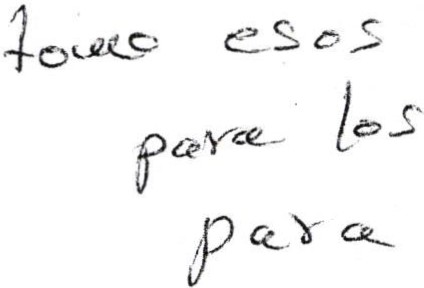 tomo esos
para los
para